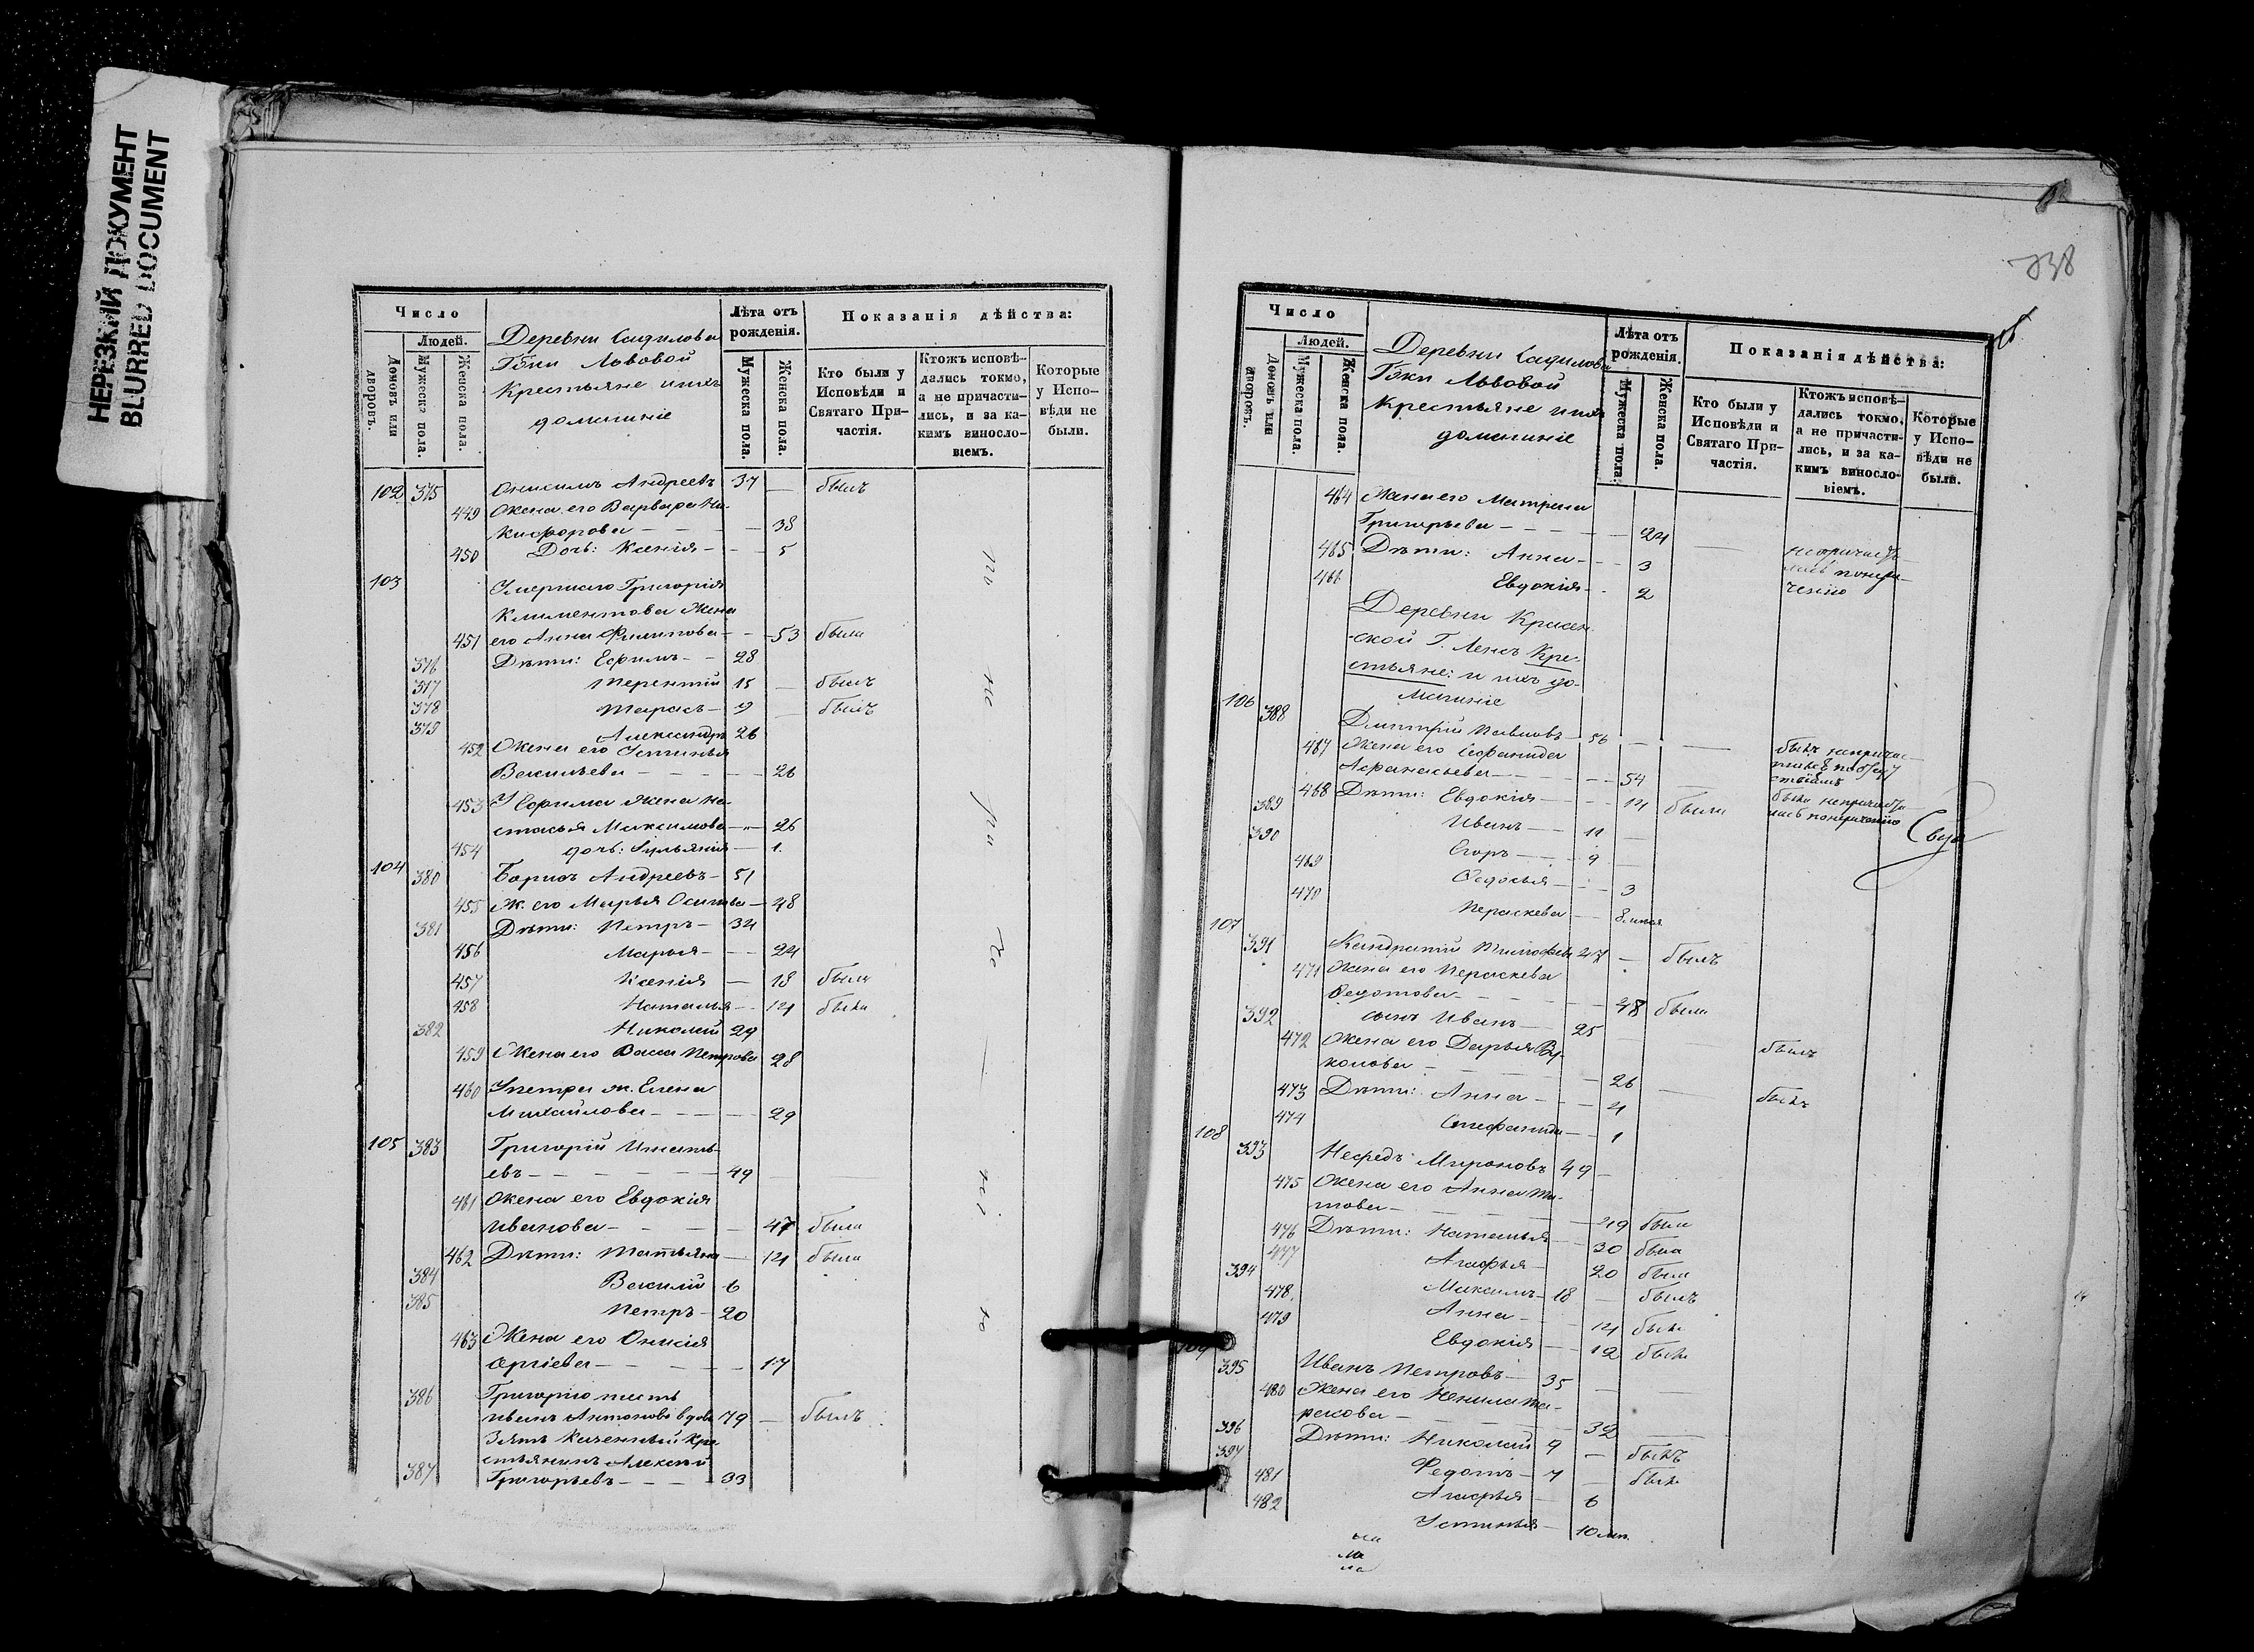 НЕРЕЗКИЙ ДОКУМЕНТ
BLURRED DOCUMENT
Число
Людей.
Домовъ или дворовъ.
Мужеска пола.
Женска пола.
Деревни Садилова
Гжи Львовой
Крестьяне и ихъ
домашніе
Лѣта отъ рожденія.
Мужеска пола.
Женска пола.
Показанія дѣйства:
Кто были у Исповѣди и Святаго Причастія.
Ктожъ исповѣдались токмо, а не причастились, и за какимъ винословіемъ.
Которые у Исповѣди не были.
102 375 Онисимъ Андреевъ 37 — былъ
449 Жена его Варвара Ни-
кифорова — — — 38
450 Дочь: Ксенія — — 5
103 Умершаго Григорія
Климентова жена
451 его Анна Филипова — — 53 была
376 Дѣти: Ефимъ — 28
377 Терентій 15 — былъ
378 Тарасъ — 9 — былъ
379 Александръ 26
452 Жена его Устинья
Васильева — — — 26
453 У Ефима жена На-
стасья Максимова — 26
454 дочь: Ульянія — 1.
104 380 Борисъ Андреевъ — 51
455 Ж. его Марья Осипова — 48
381 Дѣти: Петръ — 32
456 Марья — — 22
457 Ксенія — 18 была
458 Наталья — 12 была
382 Николай 29
459 Жена его Васса Петрова 28
460 У Петра ж. Елена
Михайлова — — — 29
105 383 Григорій Игнать-
евъ — — — 49
461 Жена его Евдокія
Иванова — — — 47 была
462 Дѣти: Татьяна — 12 была
384 Василій 6
385 Петръ — 20
463 Жена его Онисія
— — — 17
386 Григорію тесть
Иванъ Антоновъ вдовъ 79 — былъ
Зять Казенный Кре-
стьянинъ Алексѣй
387 Григорьевъ — — — 33
738
Число
Людей.
Домовъ или дворовъ.
Мужеска пола.
Женска пола.
Деревни Садилова
Гжи Львовой
Крестьяне и ихъ
домашніе
Лѣта отъ рожденія.
Мужеска пола.
Женска пола.
Показанія дѣйства:
Кто были у Исповѣди и Святаго Причастія.
Ктожъ исповѣдались токмо, а не причастились, и за какимъ винословіемъ.
Которые у Исповѣди не были.
464 Жена его Матрена
Григорьева — — — 22
465 Дѣти: Анна — — 3
466 Евдокія — 2
Деревни Красен-
ской Г. Ленъ Кре-
стьяне: и ихъ до-
машніе
106 388 Дмитрій Павловъ — 56
467 Жена его Стефанида
Афанасьева — — — 54
468 Дѣти: Евдокія — — 12 была
389 Иванъ — 11 —
390 Егоръ — — 9 —
469 Федосья — — 3
470 Параскева — 8 мѣся
107 391 Кандратій Тимофеевъ 47 — былъ
471 Жена его Параскева
Федотова — — — 48 была
392 сынъ Иванъ — 25
472 Жена его Дарья Ву-
колова — — — 26 — былъ
473 Дѣти: Анна — — 4 — была
474 Стефанида — 1
108 393 Нефедъ Мироновъ 49 —
475 Жена его Анна Ти-
това — — — 49 была
476 Дѣти: Наталья — 30 была
477 Агафья — 20 была
394 Максимъ — 18 — былъ
478 Анна — — 14 была
479 Евдокія — — 12 была
109 395 Иванъ Петровъ — 35 — —
480 Жена его Ненила Та-
расова — — — 32 —
396 Дѣти: Николай 9 — былъ
397 Федотъ — 7 — былъ
481 Агафья — 6
482 Устинья — 10 мѣс.